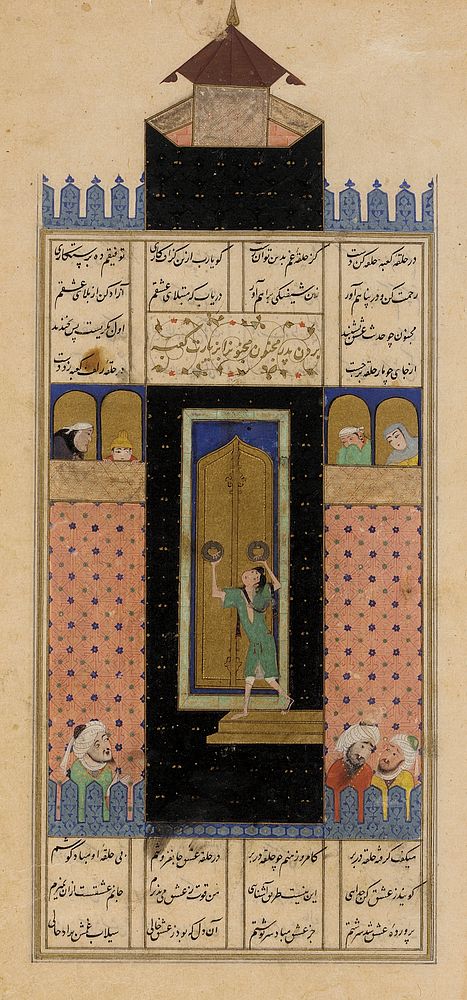 در حلقه کعبه حلقه کن دست کز حلقه غم بدین توان رست گو یارب ازین گزاف کاری توفیقم ده به رستگاری
رحمت کن و در پناهم آور زین شیفتگی براهم آور دریاب که مبتلای عشقم آزاد کن از بلای عشقم
مجنون چو حدیث عشق بشنید اول بگریست پس بخندید
بردن پدر مجنون مجنون را بزیارت کعبه
از جای چو مار حلقه برجست در حلقه زلف کعبه زد دست
میگفت گرفته حلقه در بر کامروز منم چو حلقه در بر در حلقه عشق جان فروشم بی حلقه او مباد گوشم
گویند ز عشق کن جدایی این نیست طریق آشنایی من قوت ز عشق می پذیرم جانم عشقست ازان
پرورده عشق شد سرشتم جز عشق مباد سرنوشتم آن دل که بود ز عشق خالی سیلاب غمش براد حالی